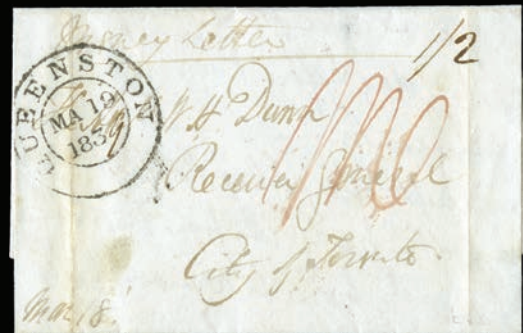 Money Letter
1/2
QUEENSTON
MA 19
183
W. H. Dunn
Receiver General
City of Toronto
Mar. 18